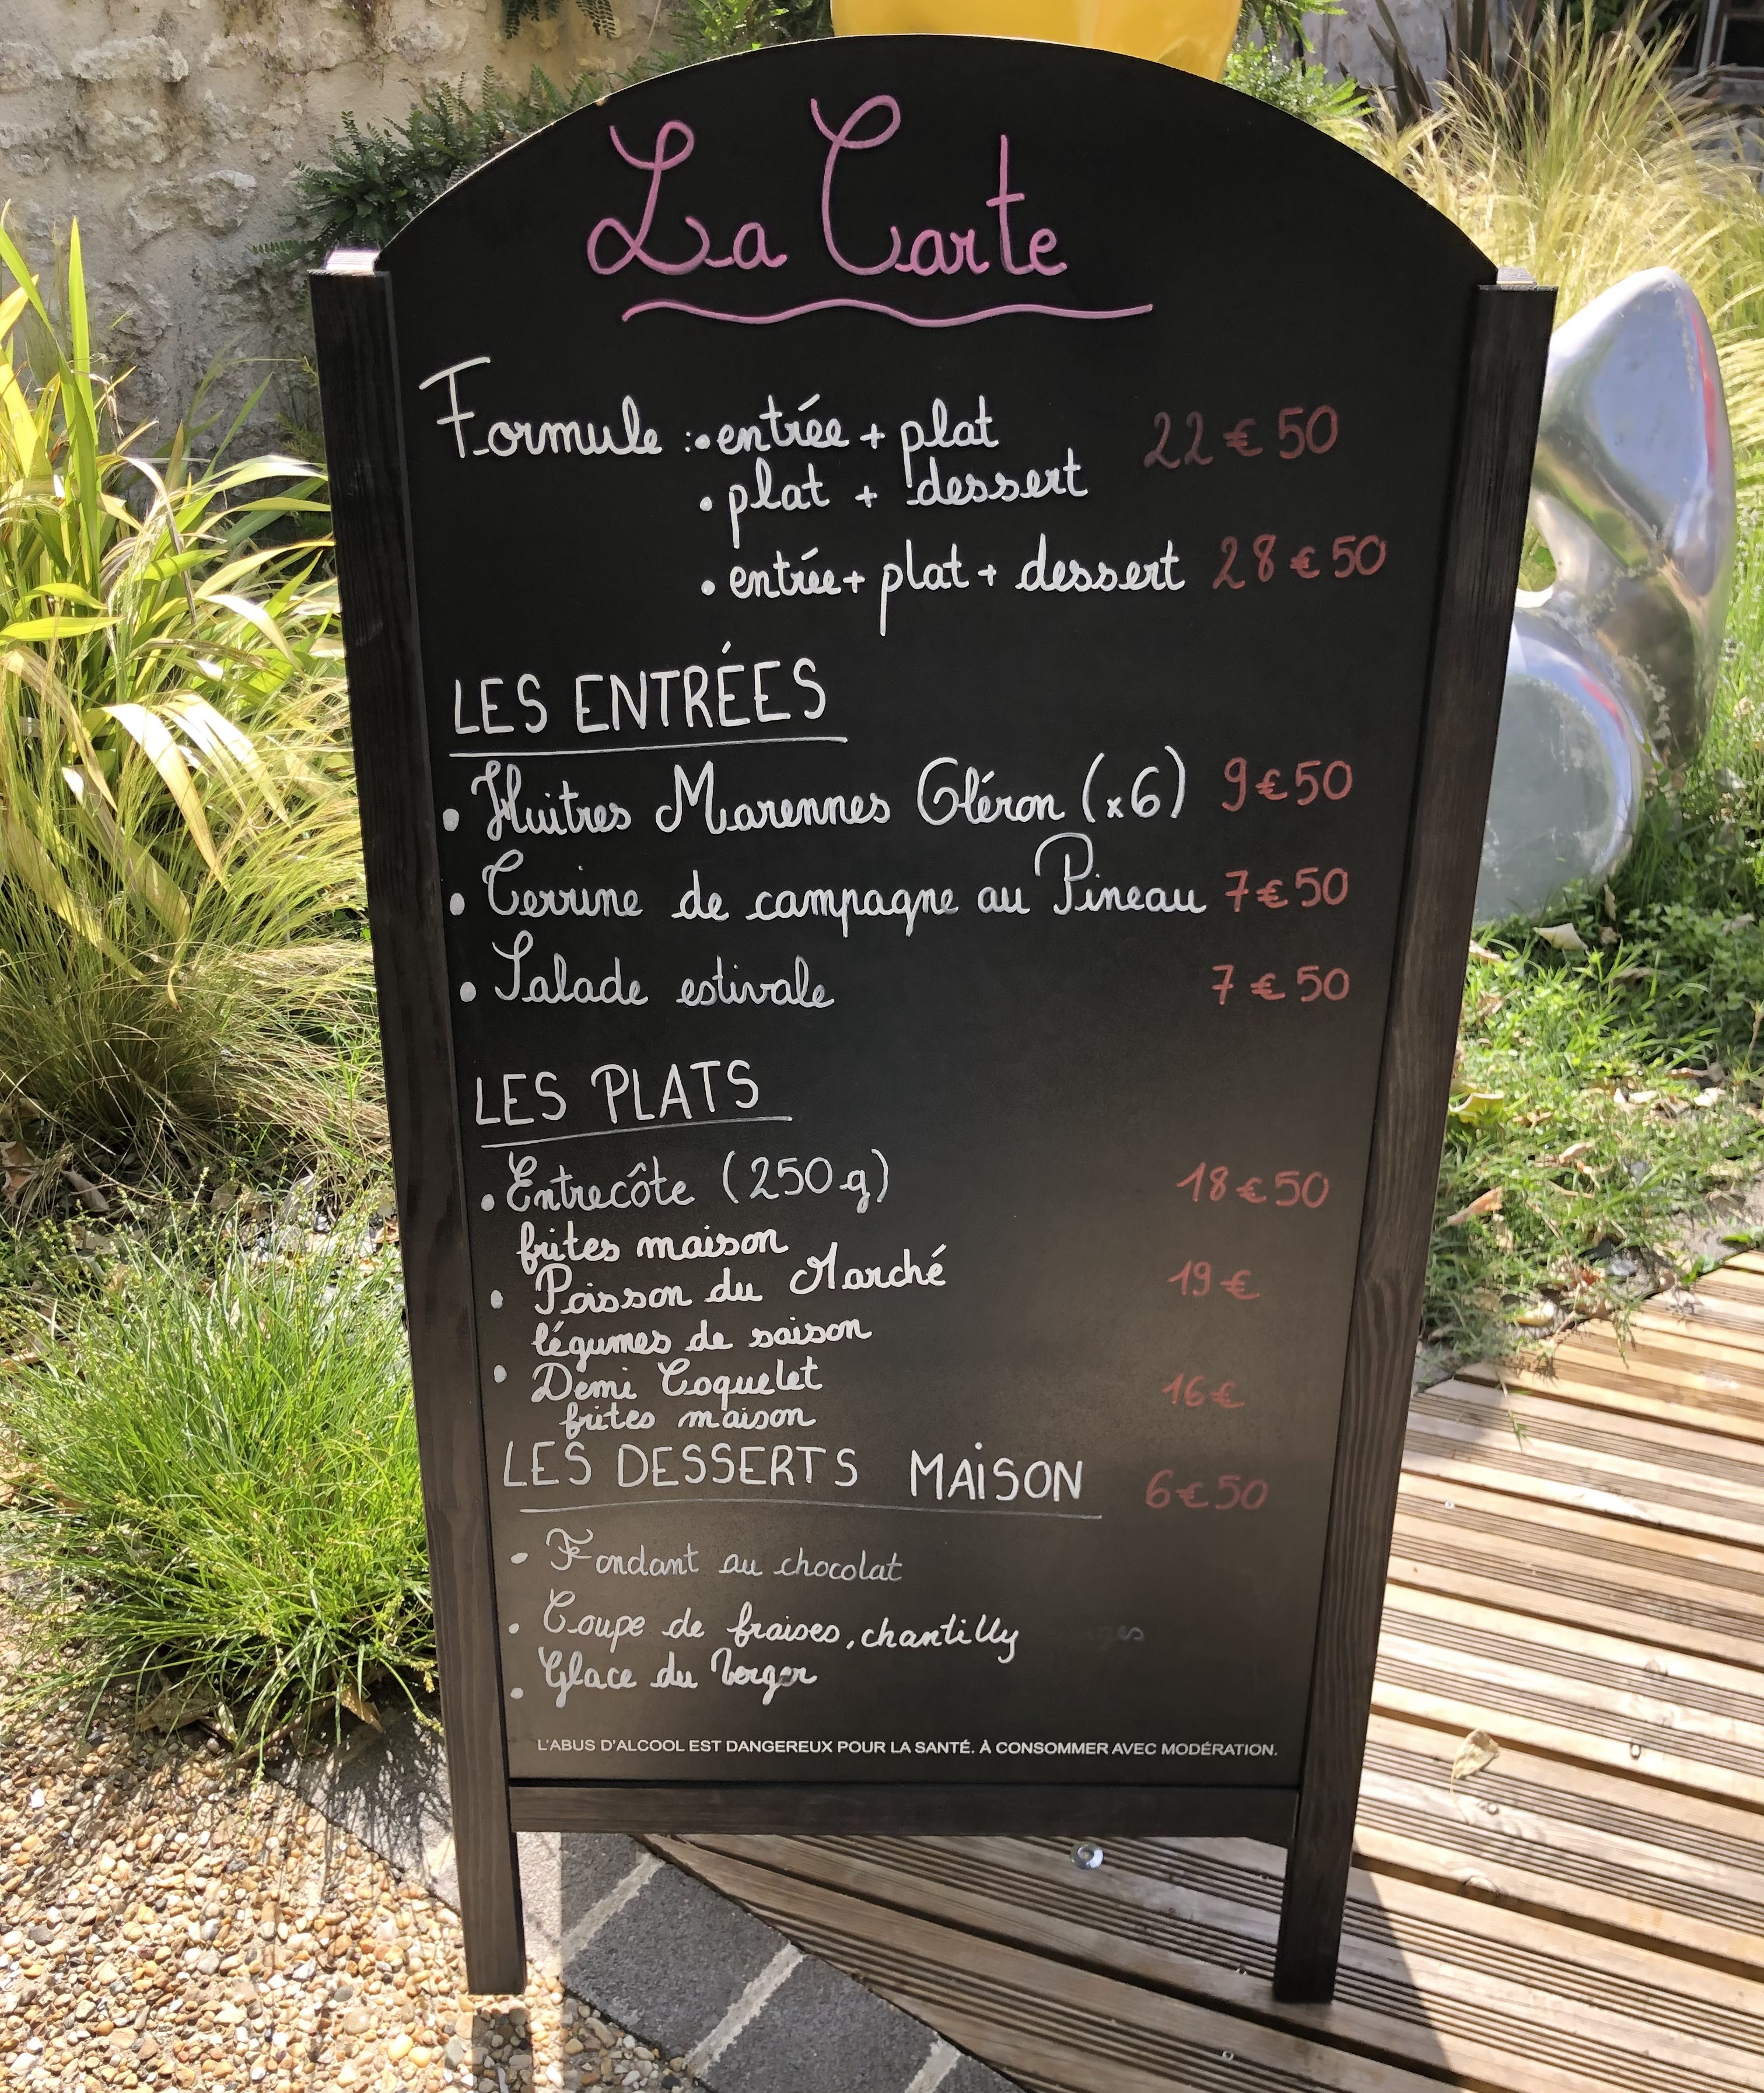 La Carte
Formule : • entrée + plat 22€50
• plat + dessert
• entrée + plat + dessert 28€50
LES ENTRÉES
• Huitres Marennes Oléron (x6) 9€50
• Terrine de campagne au Pineau 7€50
• Salade estivale 7€50
LES PLATS
• Entrecôte (250g) 18€50
frites maison
• Poisson du Marché 19€
légumes de saison
• Demi Coquelet 16€
frites maison
LES DESSERTS MAISON 6€50
• Fondant au chocolat
• Coupe de fraises, chantilly
• Glace du Verger
L'ABUS D'ALCOOL EST DANGEREUX POUR LA SANTÉ. À CONSOMMER AVEC MODÉRATION.